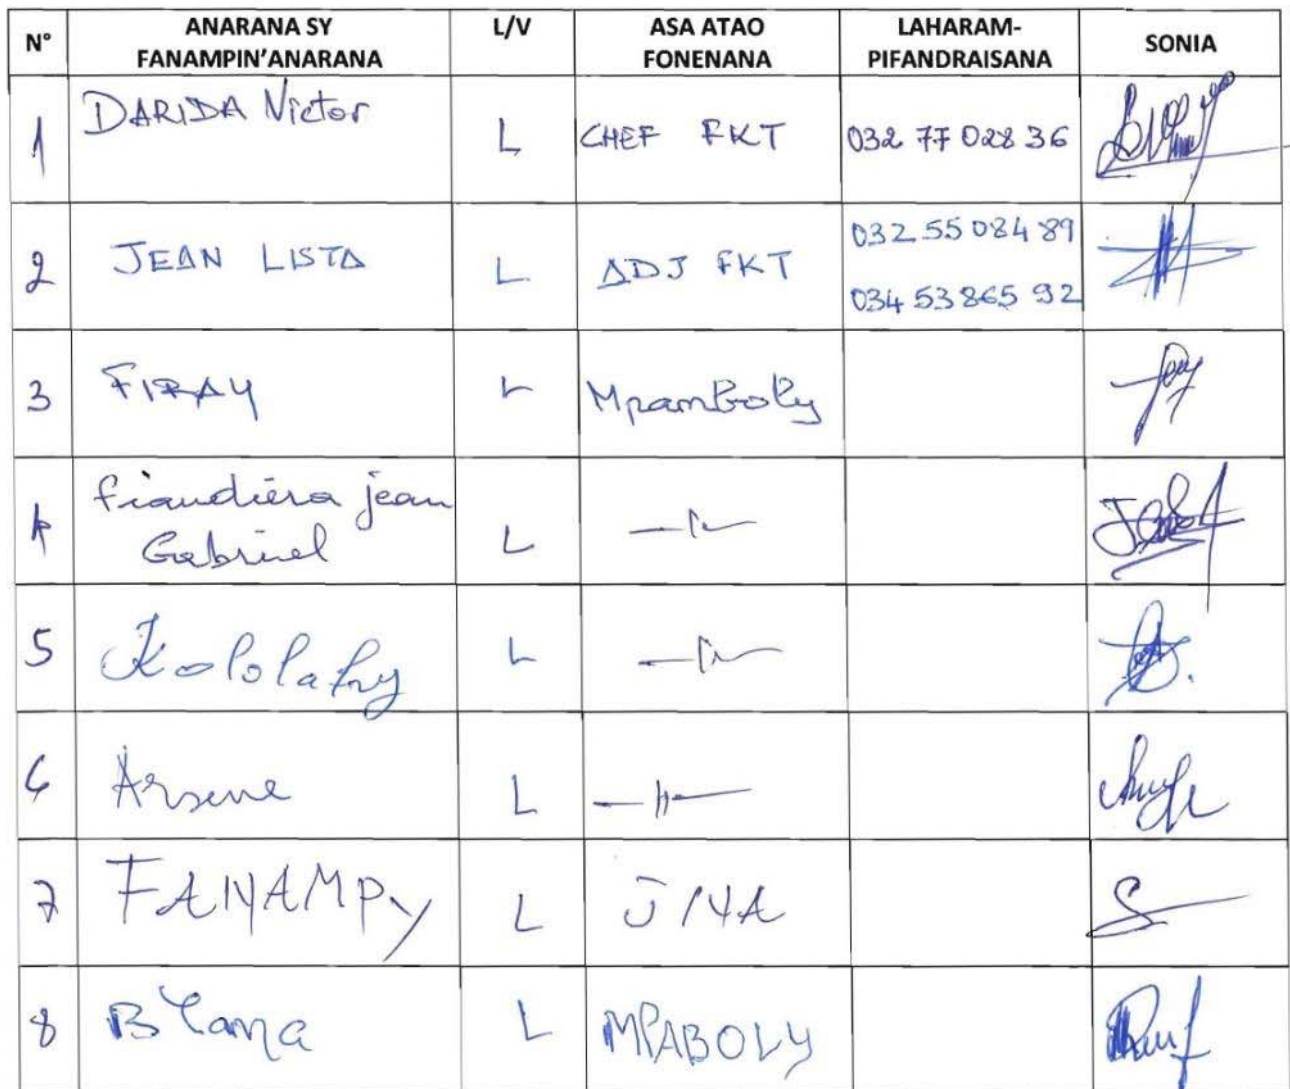 N° ANARANA SY FANAMPIN'ANARANA L/V ASA ATAO FONENANA LAHARAM-PIFANDRAISANA SONIA
1 DARIDA Victor L CHEF FKT 032 77 028 36
2 JEAN LISTA L ADJ FKT 032 55 084 89
034 53 865 92
3 FIRAY L Mpamboly
4 fiandiera jean
Gabriel L
5 Kololahy L
6 Arsene L
7 FANAMPY L
8 L MPABOLY